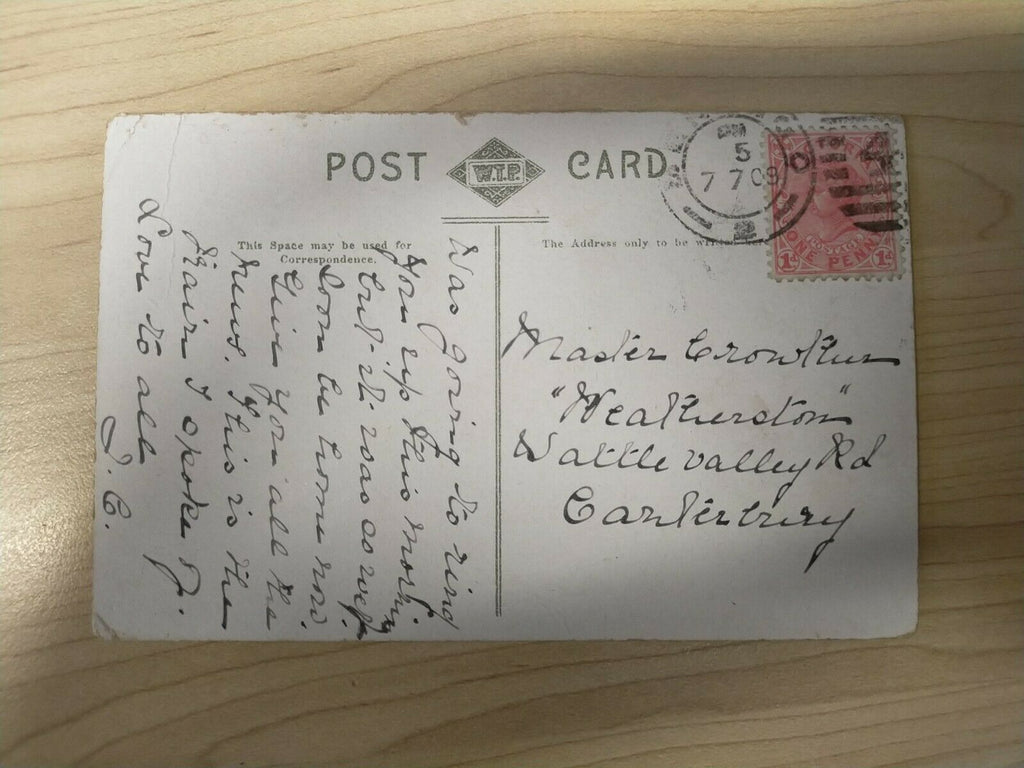 POST W.T.P. CARD
This Space may be used for
Correspondence.
The Address only to be written here
5
7 7 09
2
ONE PENNY
1d 1d
Was going to ring
you up this morning
but it was so wet
Soon be home now
Give you all the
news. This is the
train I spoke of.
Love to all
Master Crowther
"Weatherston"
Wattle valley Rd
Canterbury